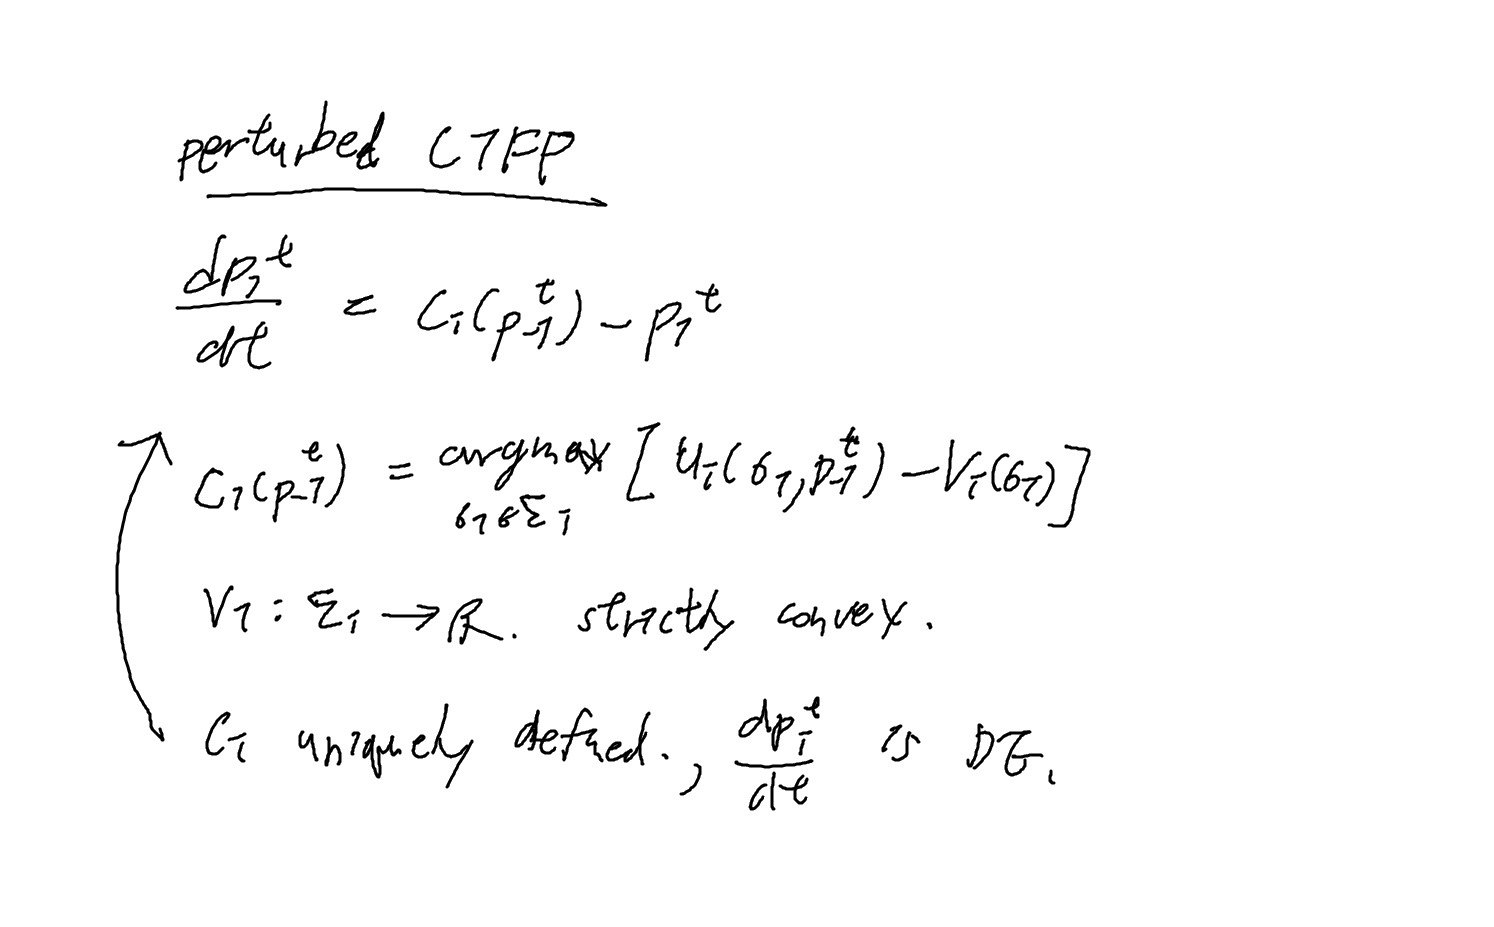 perturbed CTFP
dp_i^t/dt = C_i(p_{-i}^t) - p_i^t
C_i(p_{-i}^t) = argmax_{σ_i∈Σ_i} [u_i(σ_i, p_{-i}^t) - V_i(σ_i)]
V_i : Σ_i → R. strictly convex.
C_i uniquely defined., dp_i^t/dt is DE.